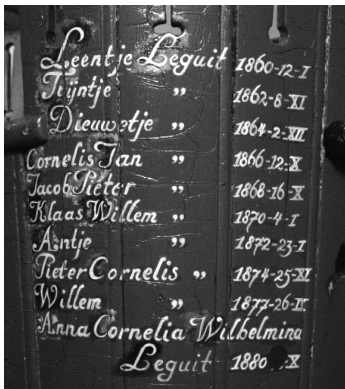 Leentje Leguit 1860-12-I
Trijntje ” 1862-8-XI
Dieuwetje ” 1864-2-XII
Cornelis Jan ” 1866-12-X
Jacob Pieter ” 1868-16-X
Klaas Willem ” 1870-4-I
Antje ” 1872-23-I
Pieter Cornelis ” 1874-25-XI
Willem ” 1877-26-II
Anna Cornelia Wilhelmina
Leguit 1880 X